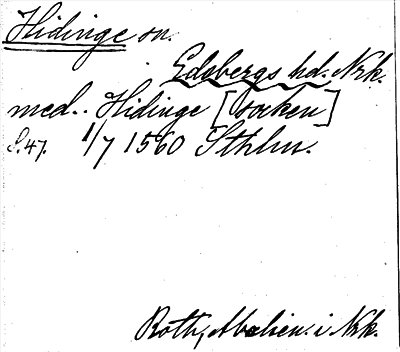 Hidinge sn.
Edsbergs hd. Nrk.
med.. Hidinge [socken]
S.47. 1/7 1560 Sthlm.
Roth, i Nrk.